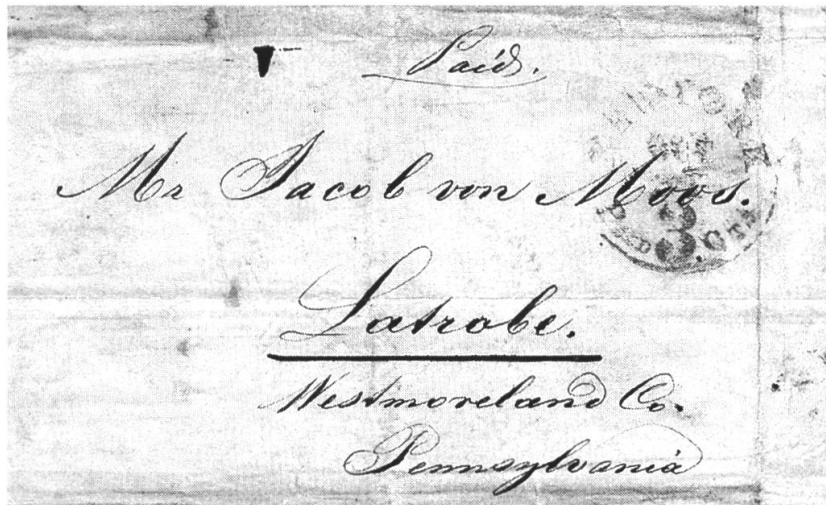 Paid.
NEW YORK
Mr Jacob von Moos.
PAID CTS
Latrobe.
Westmoreland Co.
Pennsylvania